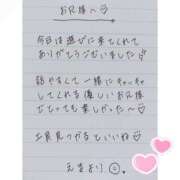 お兄様へ♡
今日は遊びに来てくれて
ありがとうございました
話やすくて一緒にキャッキャ
してくれる優しいお兄様
だとっても楽しかった〜♡
お見
いいね♡
より☺